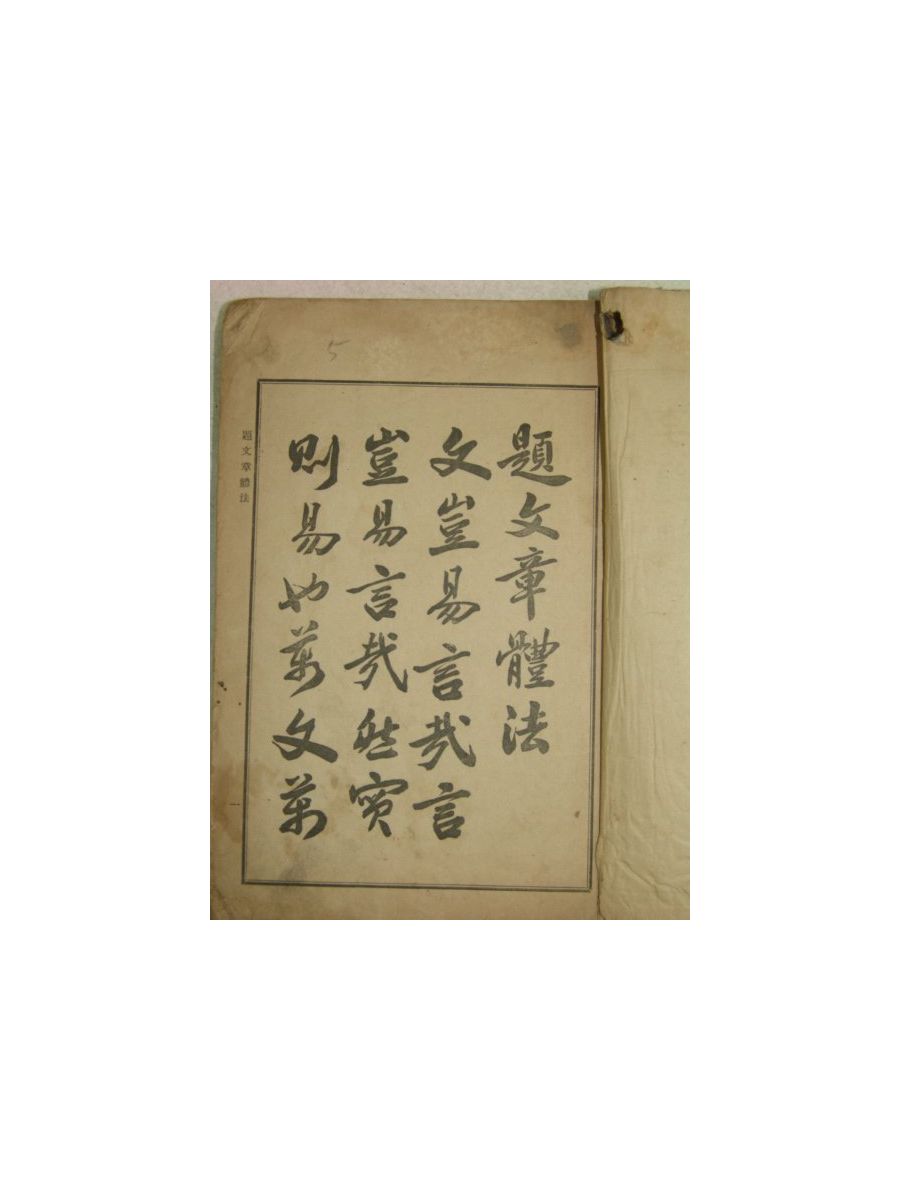 5
題文章體法
文豈易言哉言
豈易言哉然實
則易也萬文萬
題文章體法
一